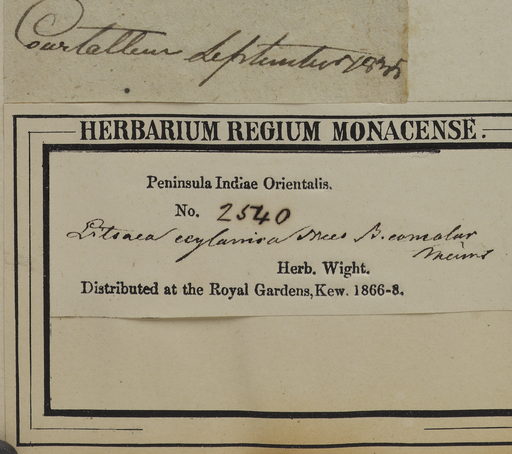 Courtallum September 1835
HERBARIUM REGIUM MONACENSE.
Peninsula Indiae Orientalis.
No. 2540
Litsaea zeylanica Nees B.
Herb. Wight.
Distributed at the Royal Gardens, Kew. 1866-8.